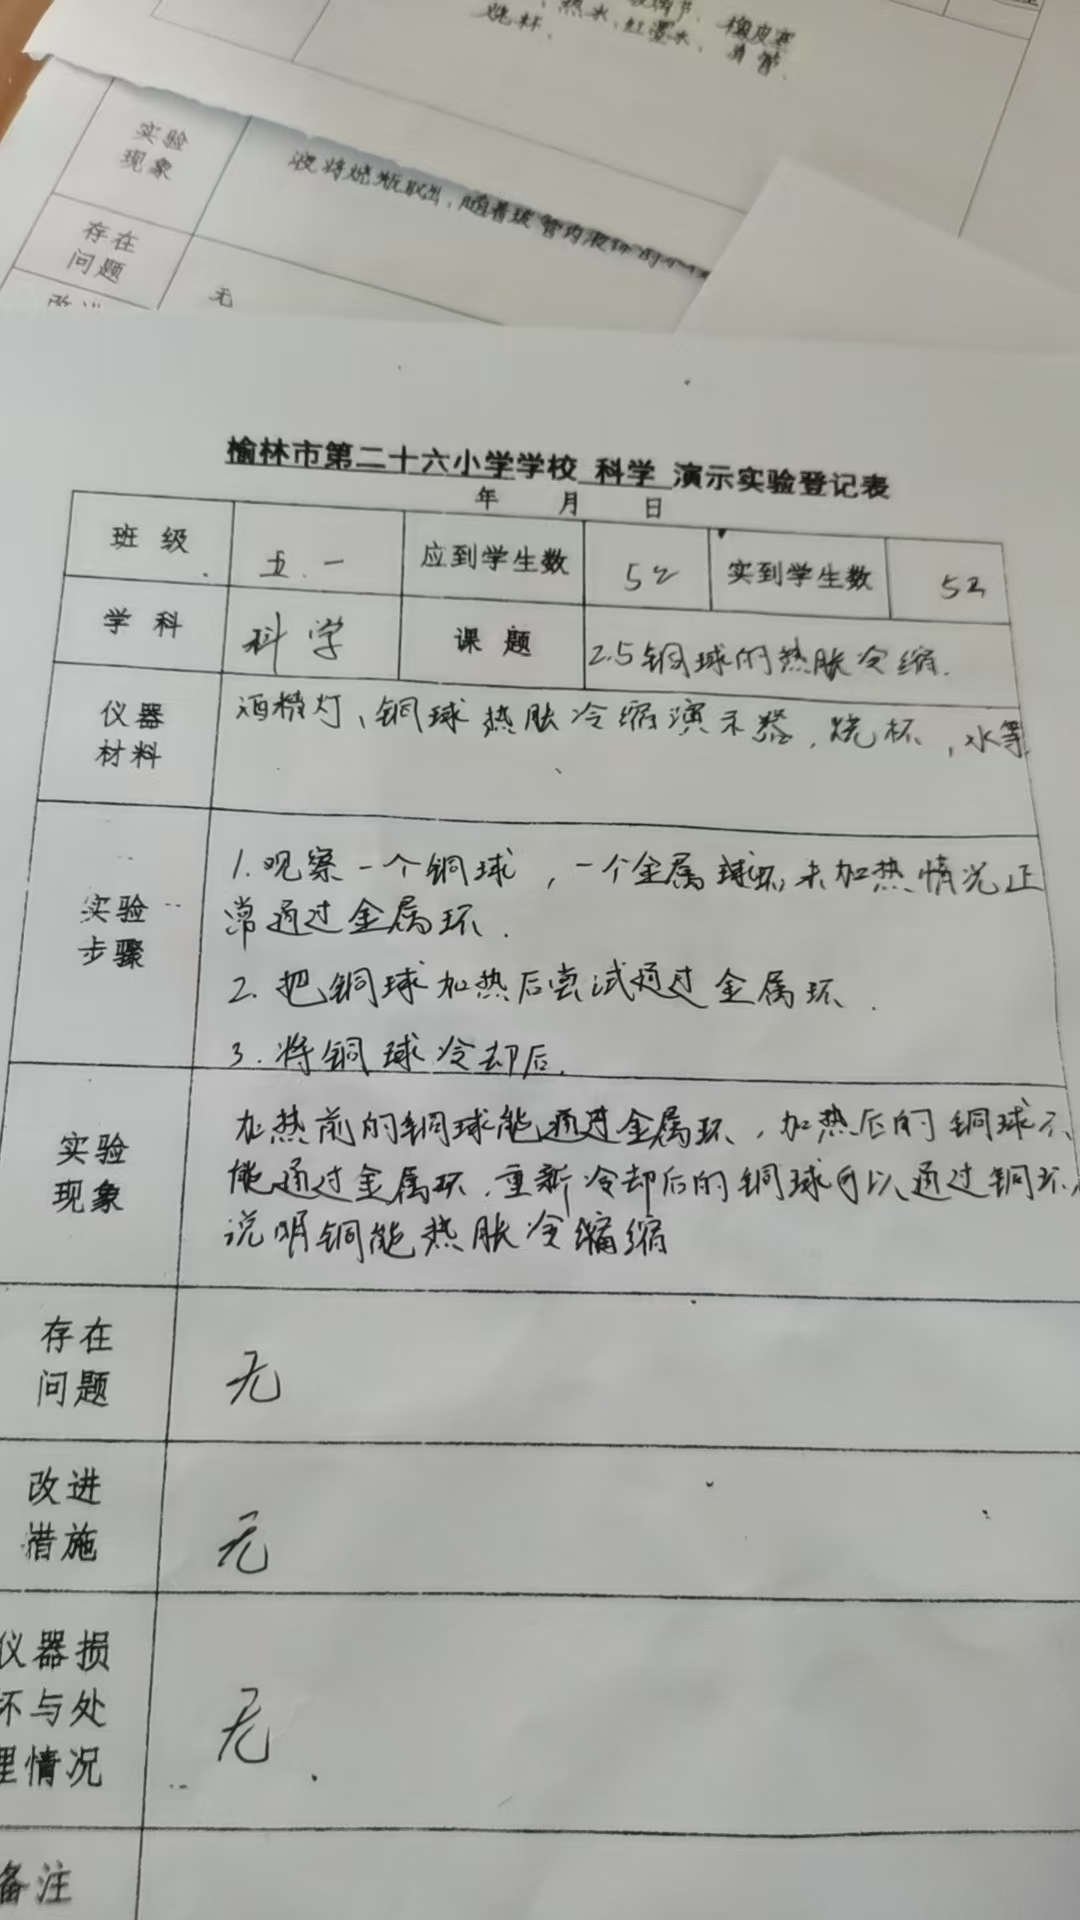 热水、红墨水、
橡皮塞
烧杯.
实验
现象
液将烧瓶取出,随着玻管内液
存在
问题
无
改进
榆林市第二十六小学学校 科学 演示实验登记表
年 月 日
班级 五.一 应到学生数 52 实到学生数 52
学科 科学 课题 2.5铜球的热胀冷缩.
仪器
材料
酒精灯、铜球热胀冷缩演示器,烧杯,水等
实验
步骤
1.观察一个铜球,一个金属球环,未加热情况正
常通过金属环.
2.把铜球加热后尝试通过金属环.
3.将铜球冷却后.
实验
现象
加热前的铜球能通过金属环,加热后的铜球不
能通过金属环.重新冷却后的铜球可以通过铜环,
说明铜能热胀冷缩缩
存在
问题
无
改进
措施
无
仪器损
坏与处
理情况
无
备注